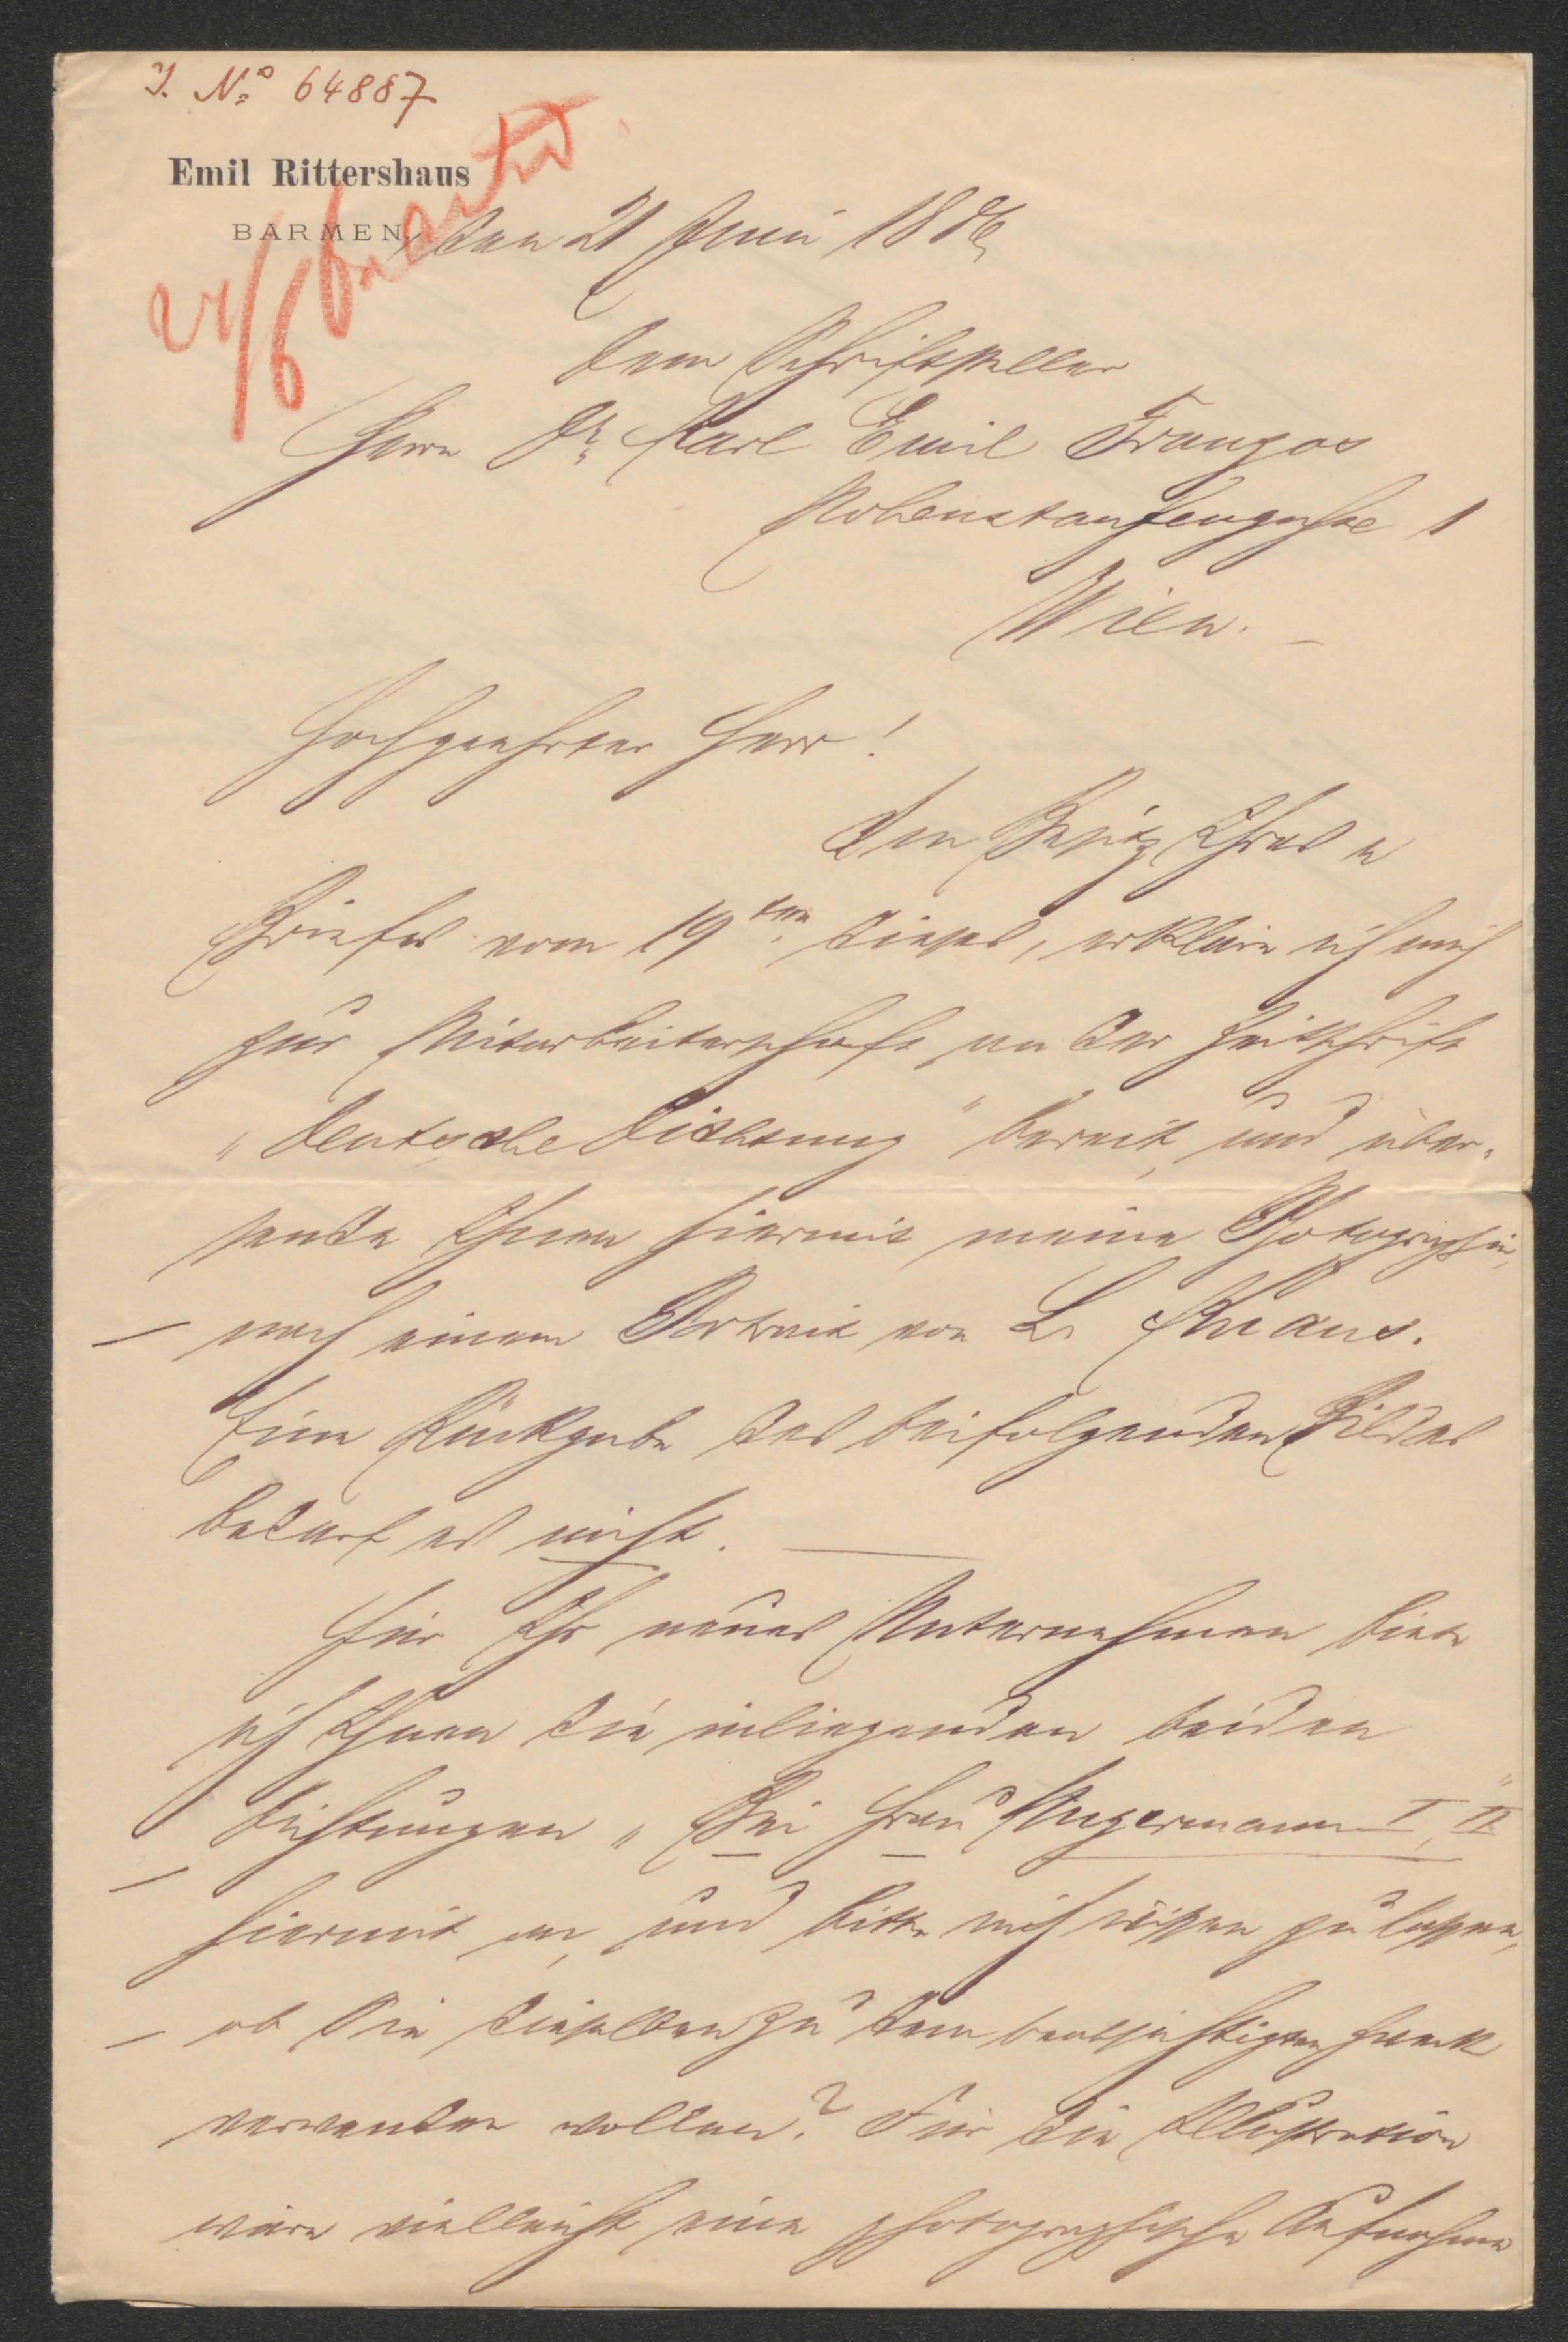 I. Nº 64887
Emil Rittershaus
BARMEN, den 21 Juni 1886
24/6 beantw.
Dem Schriftsteller
Herrn Dr. Karl Emil Franzos
Hohenstaufengasse 1
Wien. –
Hochgeehrter Herr!
Im Besitz Ihres
Briefes vom 19ten dieses, erkläre ich mich
zur Mitarbeiterschaft an der Zeitschrift
„Deutsche Dichtung" bereit, und über-
sende Ihnen hiermit meine Photographie,
– nach einem Portrait von L. Knaus.
Eine Rückgabe des beifolgenden Bildes
bedarf es nicht. —
Für Ihr neues Unternehmen biete
ich Ihnen die inliegenden beiden
Dichtungen „Bei Frau Angermann I, II"
– hiermit an, und bitte mich wissen zu lassen,
– ob Sie dieselben zu dem beabsichtigten Zweck
verwenden wollen? Für die Illustration
wäre vielleicht eine photographische Aufnahme